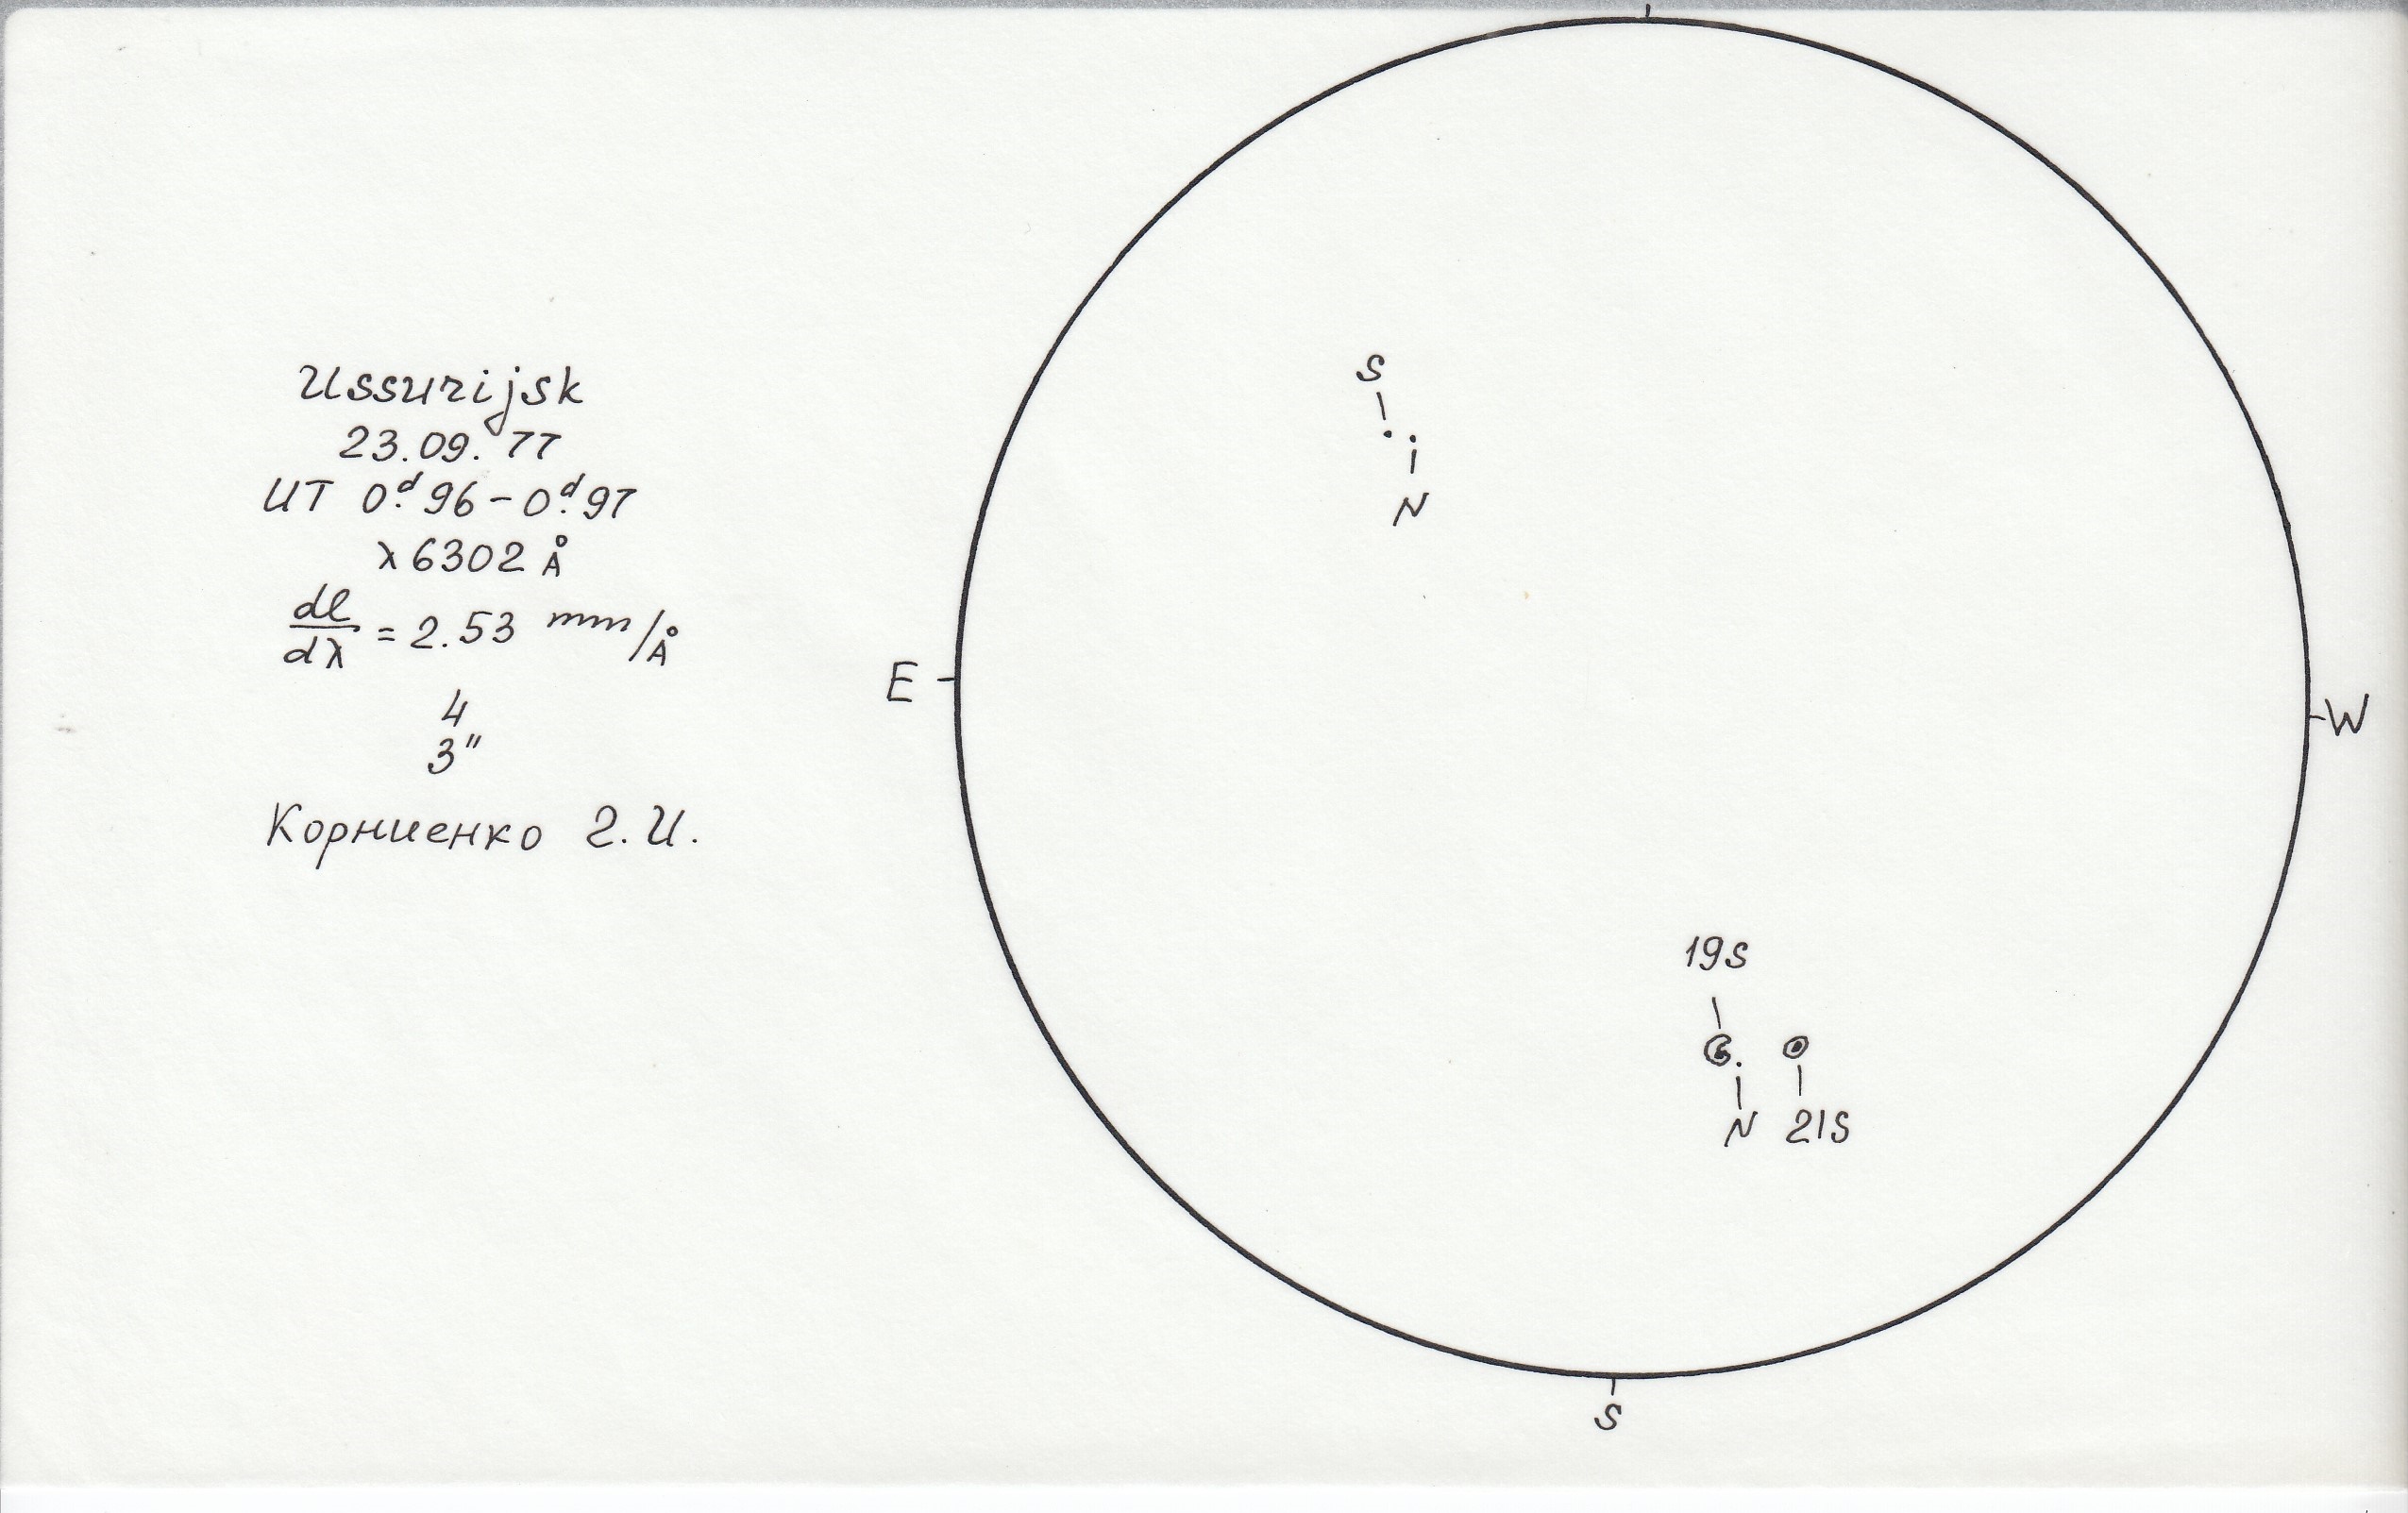 Ussurijsk
23.09.77
UT 0.ᵈ96 – 0.ᵈ97
λ 6302 Å
dl/dλ = 2.53 mm/Å
4
3"
Корниенко Г.И.
S
N
E
W
19S
N 21S
S